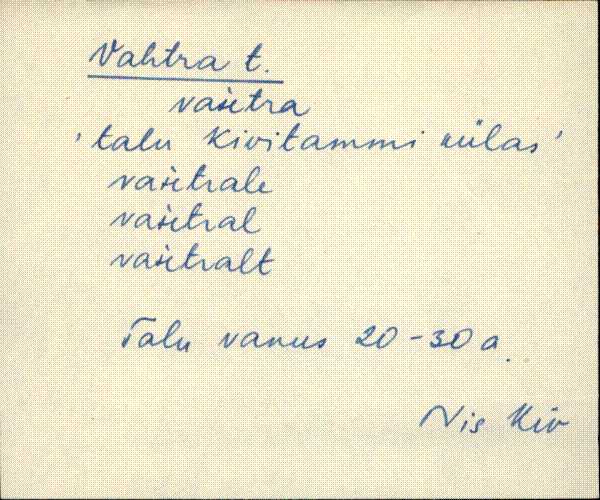 Vahtra t.
vaietra
'talu Kivitammi külas'
vaietrale
vaietral
vaietralt
Talu vanus 20-30 a.
Nis Kiv